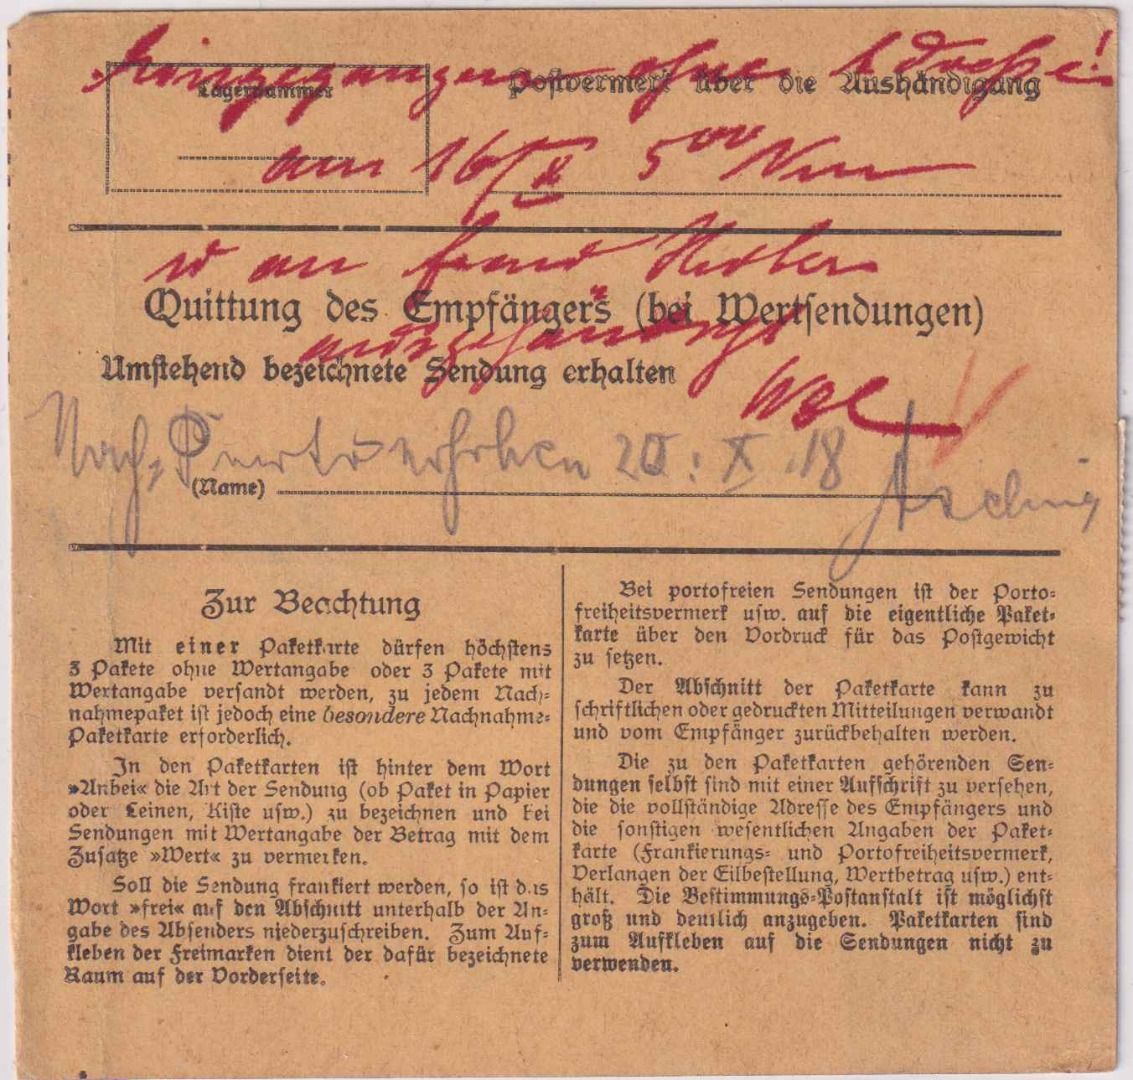 eingegangen ohne Adresse!
Lagernummer
Postvermerk über die Aushändigung
am 16/X 5⁰⁰ Nm
u an
Quittung des Empfängers (bei Wertsendungen)
Umstehend bezeichnete Sendung erhalten
Nach, Porto erhoben 20. X. 18
(Name)
Zur Beachtung
Mit einer Paketkarte dürfen höchstens
3 Pakete ohne Wertangabe oder 3 Pakete mit
Wertangabe versandt werden, zu jedem Nach-
nahmepaket ist jedoch eine besondere Nachnahme-
Paketkarte erforderlich.
In den Paketkarten ist hinter dem Wort
»Anbei« die Art der Sendung (ob Paket in Papier
oder Leinen, Kiste usw.) zu bezeichnen und bei
Sendungen mit Wertangabe der Betrag mit dem
Zusatze »Wert« zu vermerken.
Soll die Sendung frankiert werden, so ist das
Wort »frei« auf den Abschnitt unterhalb der An-
gabe des Absenders niederzuschreiben. Zum Auf-
kleben der Freimarken dient der dafür bezeichnete
Raum auf der Vorderseite.
Bei portofreien Sendungen ist der Porto-
freiheitsvermerk usw. auf die eigentliche Paket-
karte über den Vordruck für das Postgewicht
zu setzen.
Der Abschnitt der Paketkarte kann zu
schriftlichen oder gedruckten Mitteilungen verwandt
und vom Empfänger zurückbehalten werden.
Die zu den Paketkarten gehörenden Sen-
dungen selbst sind mit einer Aufschrift zu versehen,
die die vollständige Adresse des Empfängers und
die sonstigen wesentlichen Angaben der Paket-
karte (Frankierungs- und Portofreiheitsvermerk,
Verlangen der Eilbestellung, Wertbetrag usw.) ent-
hält. Die Bestimmungs-Postanstalt ist möglichst
groß und deutlich anzugeben. Paketkarten sind
zum Aufkleben auf die Sendungen nicht zu
verwenden.